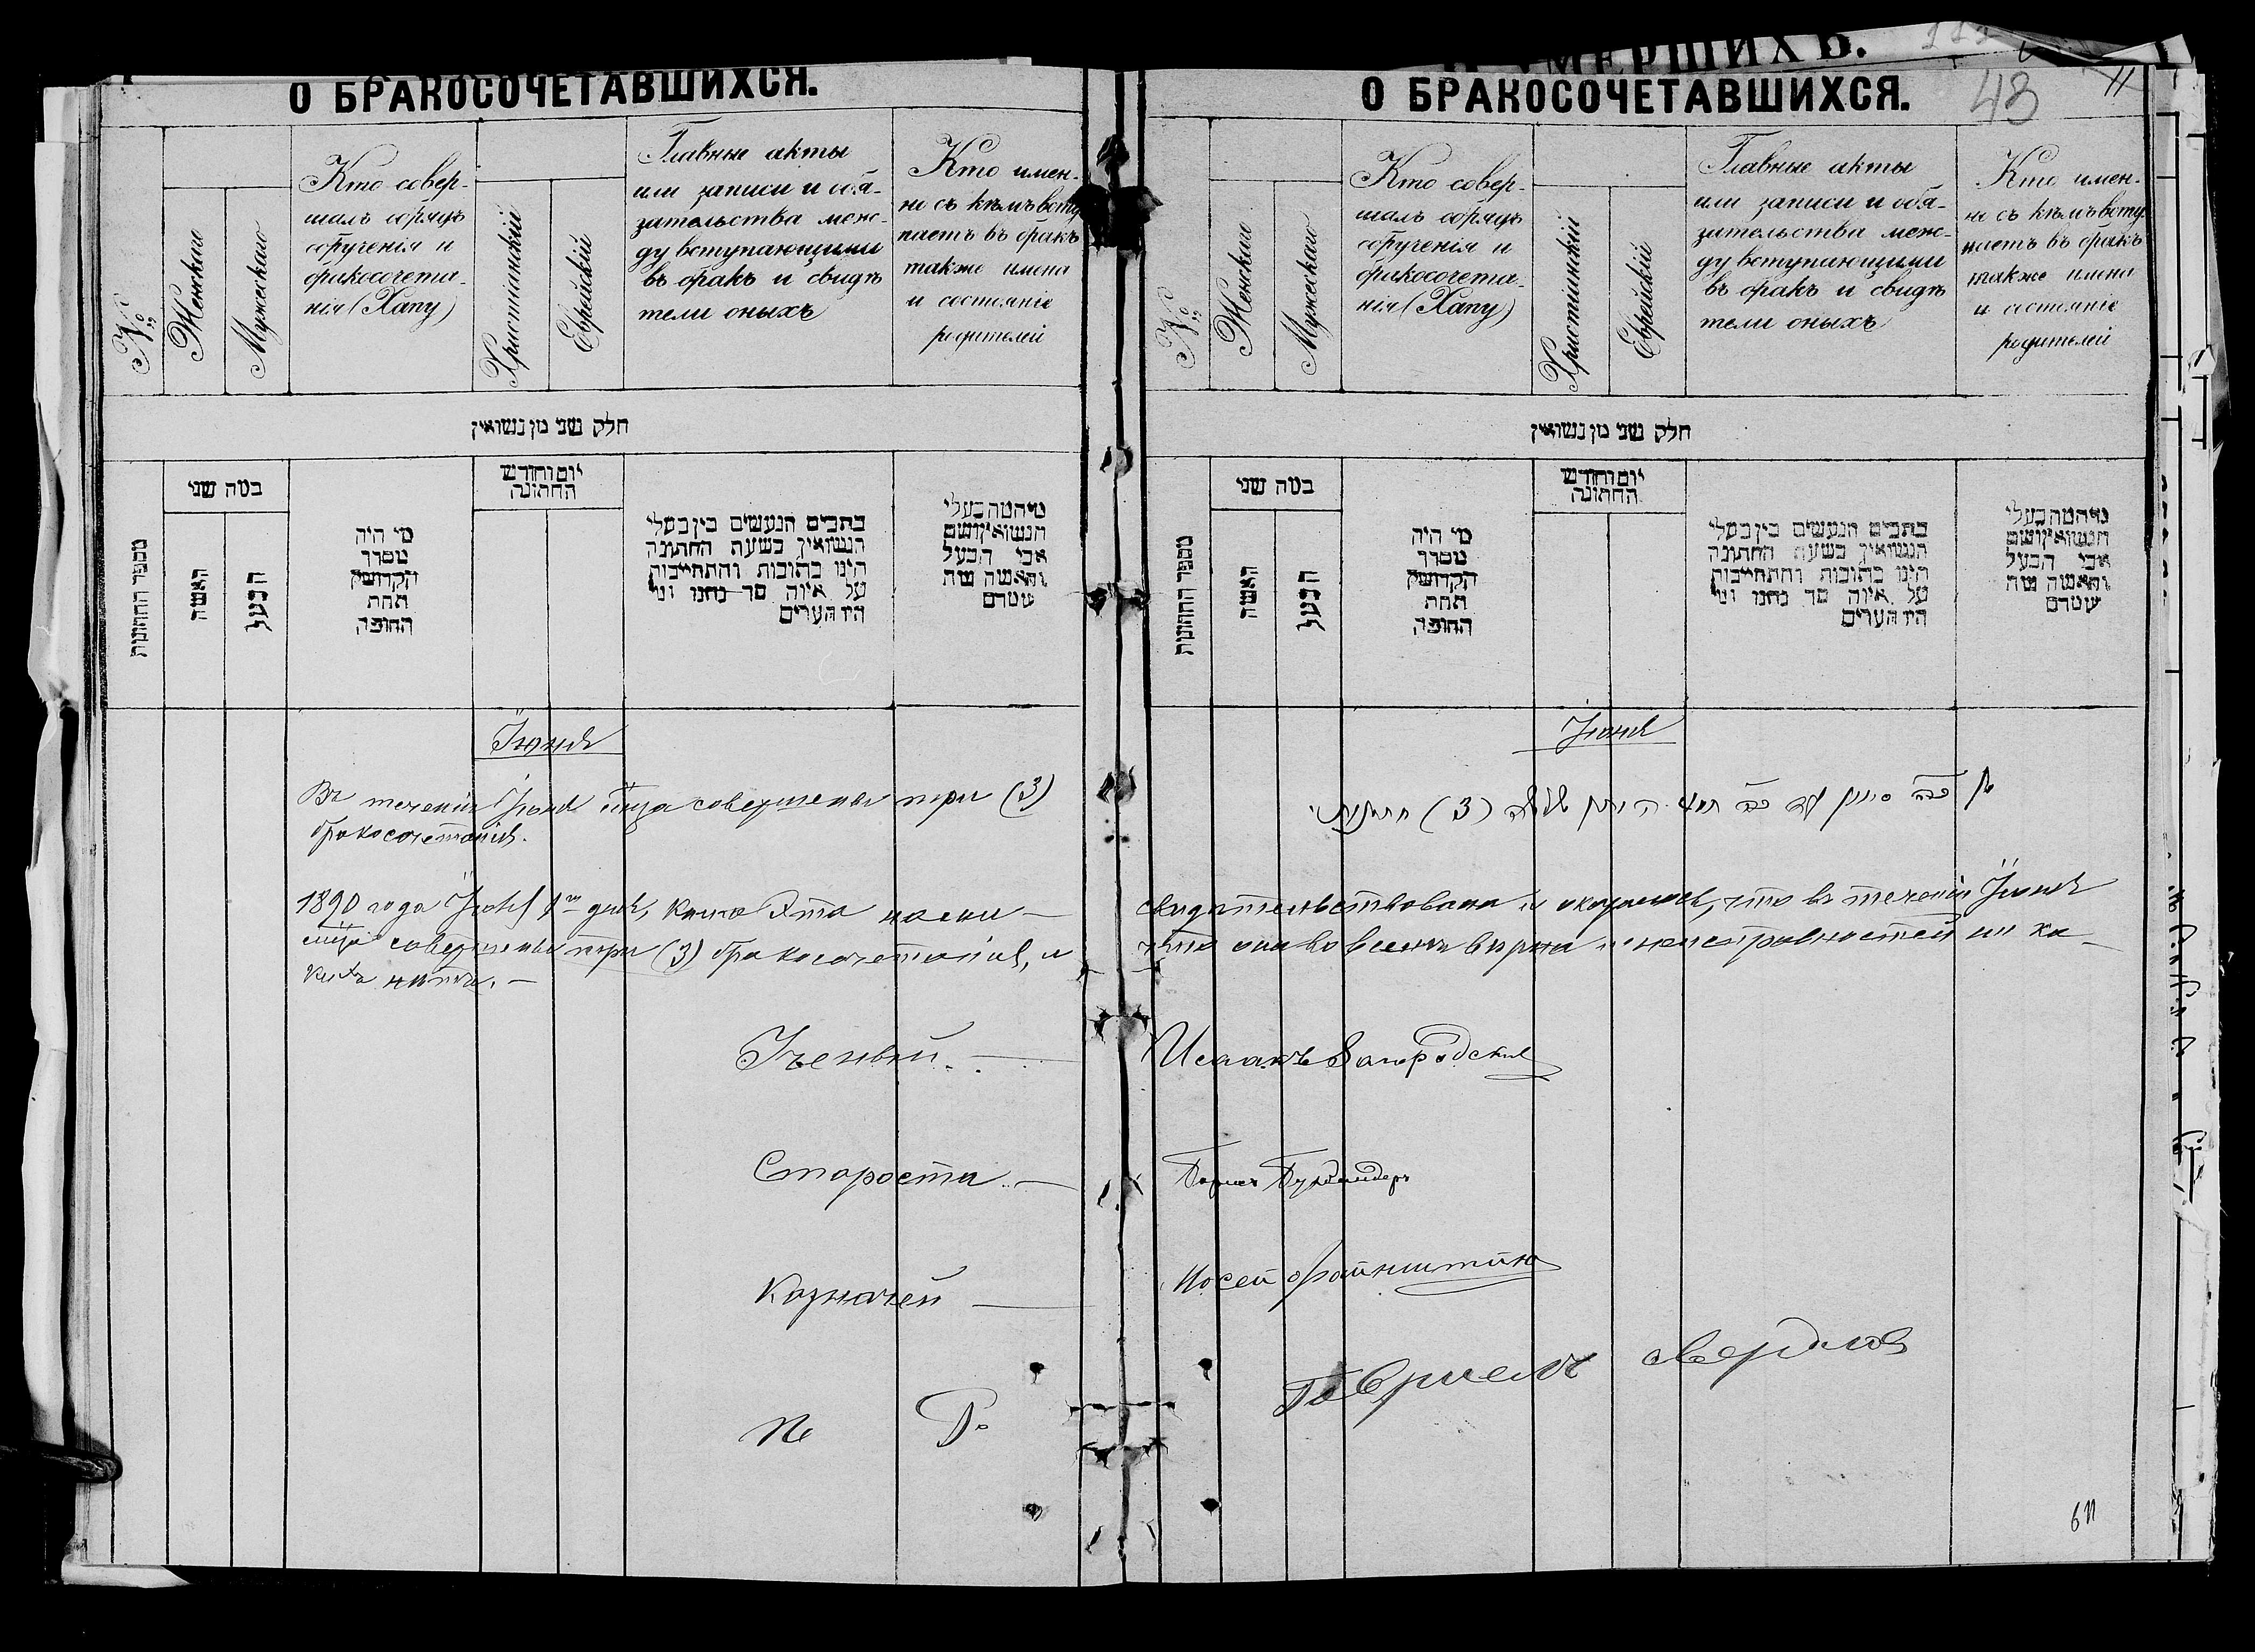 О БРАКОСОЧЕТАВШИХСЯ.
№
Женскаго
Мужескаго
Кто совер-
шалъ обрядъ
обрученія и
бракосочета-
нія (Хапу)
Христіанскій
Еврейскій
Главные акты
или записи и обя-
зательства меж-
ду вступающими
въ бракъ и свидѣ
тели оныхъ
Кто имен-
но съ кѣмъ всту
паетъ въ бракъ
также имена
и состояніе
родителей
חלק שני מן נשואין
מספר החתונות
כמה שני
האשה
הבעל
מי היה
מסדר
הקדושין
תחת
החופה
יום וחודש
החתונה
כתבים הנעשים בין בעלי
הנשואין בשעת החתונה
היינו כתובות והתחייבות
על איזה סך נתנו ומי
היו העדים
מי המה בעלי
הנשואין ושם
אבי הבעל
והאשה מה
שמדם
Іюнь
Въ теченіи Іюня м͠ца совершены три (3)
бракосочетанія.
1890 года Іюля 1го дня, книга эта нами
м͠ца совершены три (3) бракосочетанія, и
кихъ нѣтъ. —
Ученый. —
Староста. —
Казначей —
О УМЕРШИХЪ.
О БРАКОСОЧЕТАВШИХСЯ.
48
11
№
Женскаго
Мужескаго
Кто совер-
шалъ обрядъ
обрученія и
бракосочета-
нія (Хапу)
Христіанскій
Еврейскій
Главные акты
или записи и обя-
зательства меж-
ду вступающими
въ бракъ и свидѣ
тели оныхъ
Кто имен-
но съ кѣмъ всту
паетъ въ бракъ
также имена
и состояніе
родителей
חלק שני מן נשואין
מספר החתונות
כמה שני
האשה
הבעל
מי היה
מסדר
הקדושין
תחת
החופה
יום וחודש
החתונה
כתבים הנעשים בין בעלי
הנשואין בשעת החתונה
היינו כתובות והתחייבות
על איזה סך נתנו ומי
היו העדים
מי המה בעלי
הנשואין ושם
אבי הבעל
והאשה מה
שמדם
Іюнь
סיון עד (3)
свидѣтельствована и оказалось, что въ теченіи Іюня
что она во всемъ вѣрна и неисправностей ни ка-
Исаакъ Загородскій
Гавріелъ Свердлов